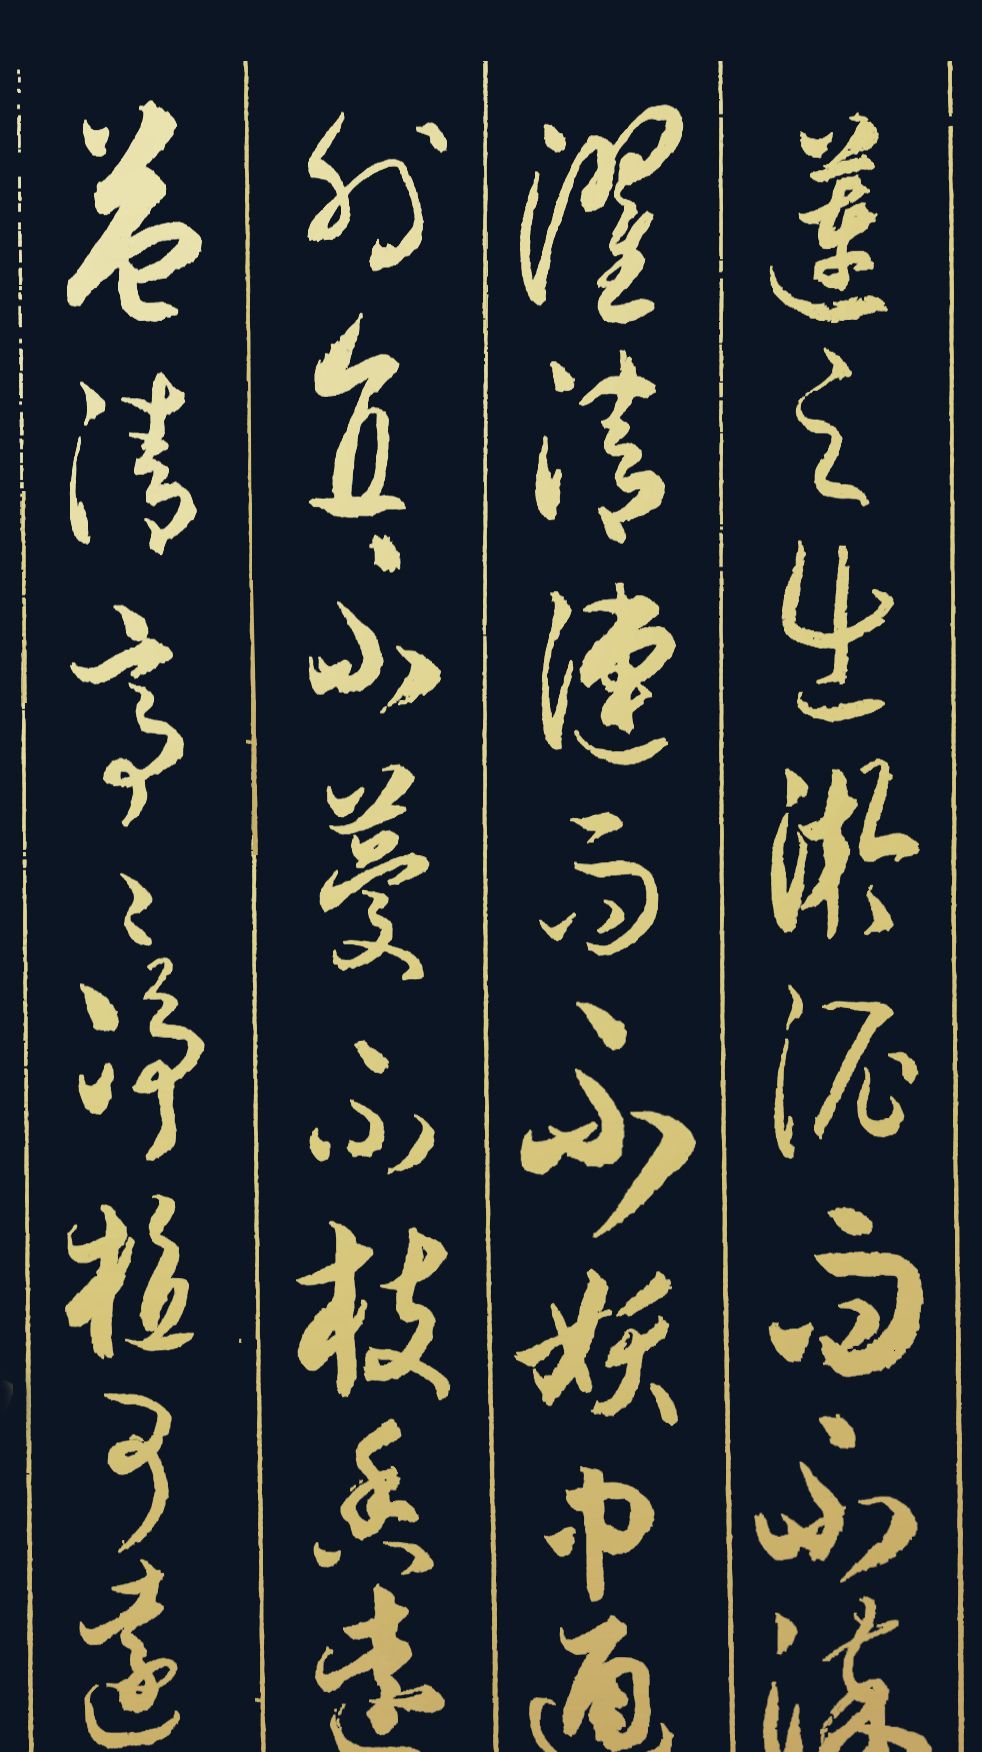 蓮之出淤泥而不染
濯清漣而不妖中通
外直不蔓不枝香遠
益清亭〻凈植可遠